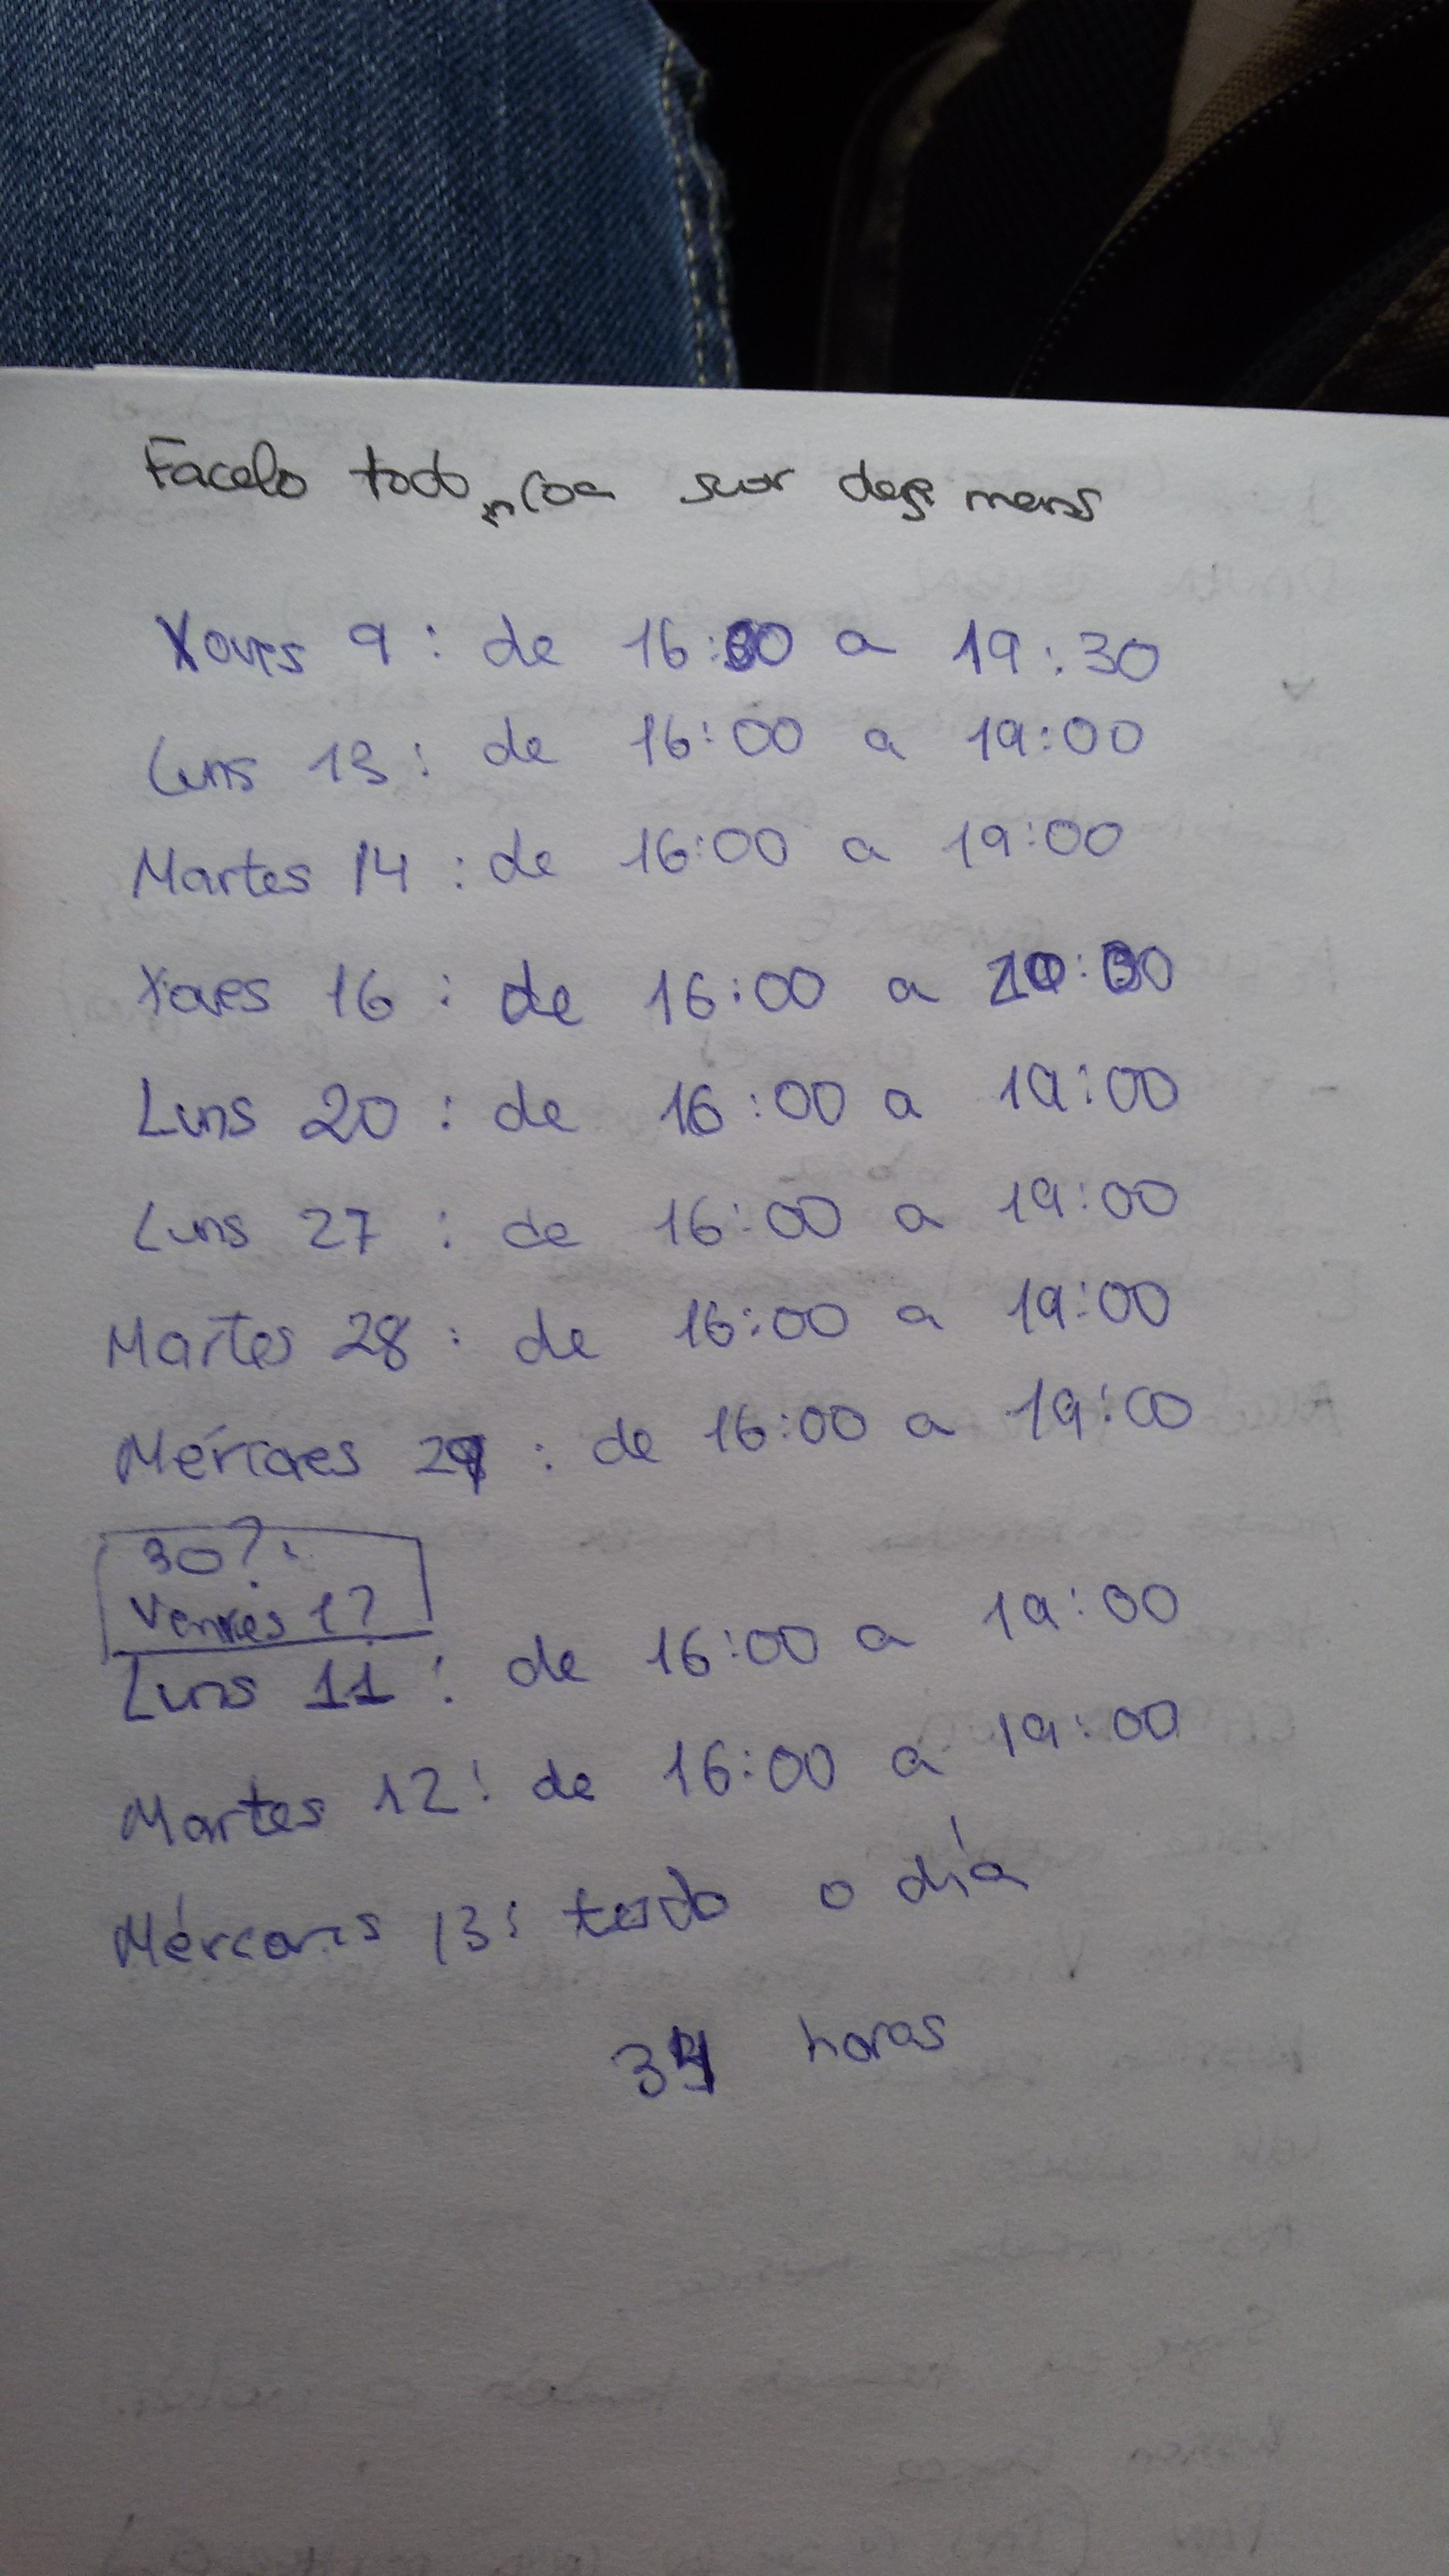 Facelo todo, coa suor dese mens
Xoves 9: de 16:30 a 19:30
Luns 13: de 16:00 a 19:00
Martes 14: de 16:00 a 19:00
Xoves 16: de 16:00 a 20:00
Luns 20: de 16:00 a 19:00
Luns 27: de 16:00 a 19:00
Martes 28: de 16:00 a 19:00
Mércores 29: de 16:00 a 19:00
30?
Venres 1?
Luns 11: de 16:00 a 19:00
Martes 12: de 16:00 a 19:00
Mércores 13: todo o día
34 horas